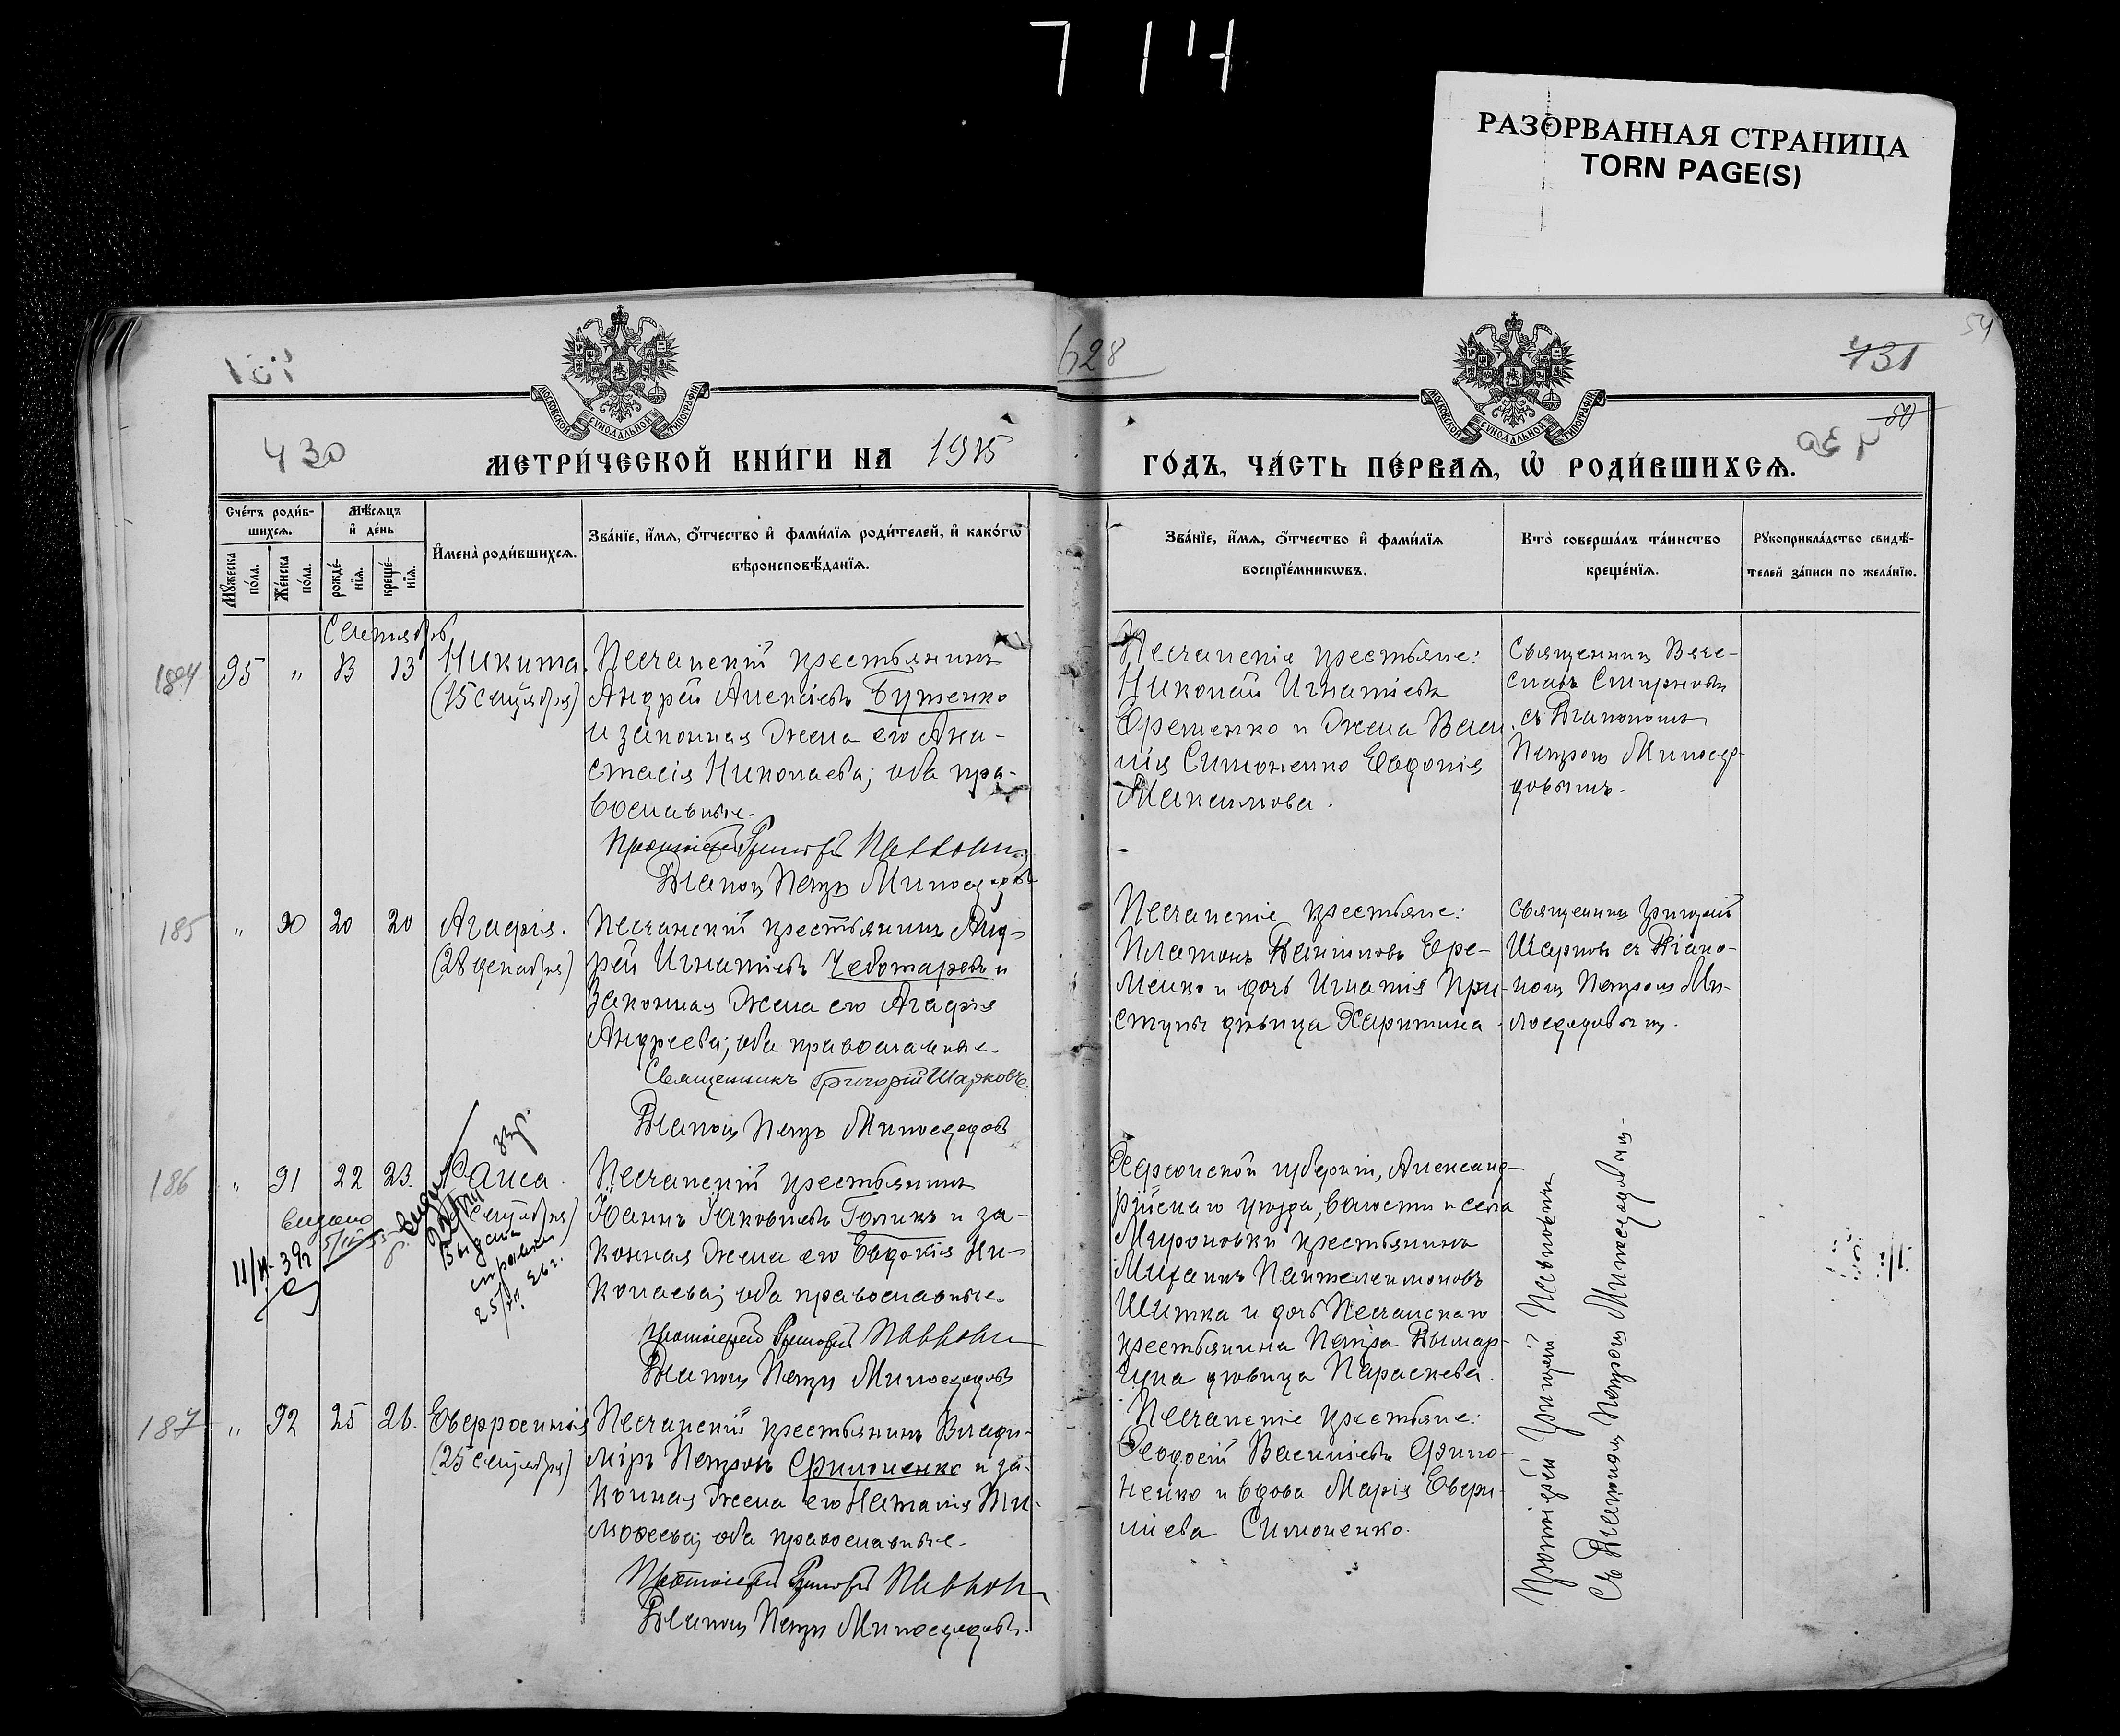 714
РАЗОРВАННАЯ СТРАНИЦА
TORN PAGE(S)
628
54
431
50
430
МОСКОВСКОЙ СУНОДАЛЬНОЙ ТИПОГРАФІИ
МОСКОВСКОЙ СУНОДАЛЬНОЙ ТИПОГРАФІИ
МЕТРИ́ЧЕСКОЙ КНИ́ГИ НА 1915
ГО́ДЪ, ЧА́СТЬ ПЕ́РВАѦ, Ѡ҆ РОДИ́ВШИХСѦ.
Сче́тъ роди́в-
шихсѧ.
Мꙋ́жеска по́ла.
Же́нска по́ла.
Мѣ́сѧцъ
и҆ де́нь
рожде́-
нїѧ.
креще́-
нїѧ.
И҆мена̀ роди́вшихсѧ.
Зва́нїе, и҆́мѧ, ѻ҆́тчество и҆ фами́лїѧ роди́телей, и҆ како́гѡ
вѣроисповѣ́данїѧ.
Зва́нїе, и҆́мѧ, ѻ҆́тчество и҆ фами́лїѧ
воспрїе́мникѡвъ.
Кто̀ соверша́лъ та́инство
креще́нїѧ.
Рꙋкоприкла́дство свидѣ́-
телей за́писи по жела́нїю.
Сентябрь
184
95 " 13 13
Никита.
(15 сентября)
Песчанскій крестьянинъ
Андрей Алексѣевъ Бутенко
и законная жена его Ана-
стасія Николаева; оба пра-
вославные.
Протоіерей Григорій Павловичъ
Діаконъ Петръ Милосердовъ
Песчанскіе крестьяне:
Николай Игнатіевъ
Еременко и жена Васи
лія Симоненко Евдокія
Максимова.
Священникъ Вяче-
славъ Смирновъ
съ Діакономъ
Петромъ Милосер-
довымъ.
185
" 90 20 20
Агафія.
(28 декабря)
Песчанскій крестьянинъ Анд-
рей Игнатіевъ Чеботаревъ и
законная жена его Агафія
Андреева; оба православные.
Священникъ Григорій Шарковъ
Діаконъ Петръ Милосердовъ
Песчанскіе крестьяне:
Платонъ Даніиловъ Ере-
менко и дочь Игнатія При-
ступы дѣвица Харитина.
Священникъ Григорій
Шарковъ съ Діако-
номъ Петромъ Ми-
лосердовымъ.
186
" 91 22 23.
Раиса.
сентября)
Выдана
справка
Выдано
Песчанскій крестьянинъ
Іоаннъ Іаковлевъ Голикъ и за-
конная жена его Евдокія Ни-
колаева; оба православные.
Протоіерей Григорій Павловичъ
Діаконъ Петръ Милосердовъ
Херсонской губерніи, Александ-
рійскаго уѣзда, волости и села
Мироновки крестьянинъ
Михаилъ Пантелеимоновъ
Шитка и дочь Песчанскаго
крестьянина Петра Дымар-
дѣвица Параскева.
Протоіерей Григорій Павловичъ
съ Діакономъ Петромъ Милосердовымъ.
187
" 92 25 26.
Евфросинія
(25 сентября)
Песчанскій крестьянинъ Влади-
міръ Петровъ Филоненко и за-
конная жена его Наталія Ти-
моѳеева; оба православные.
Протоіерей Григорій Павловичъ
Діаконъ Петръ Милосердовъ.
Песчанскіе крестьяне:
Ѳеодосій Василіевъ Фило-
ненко и вдова Марія
Симоненко.